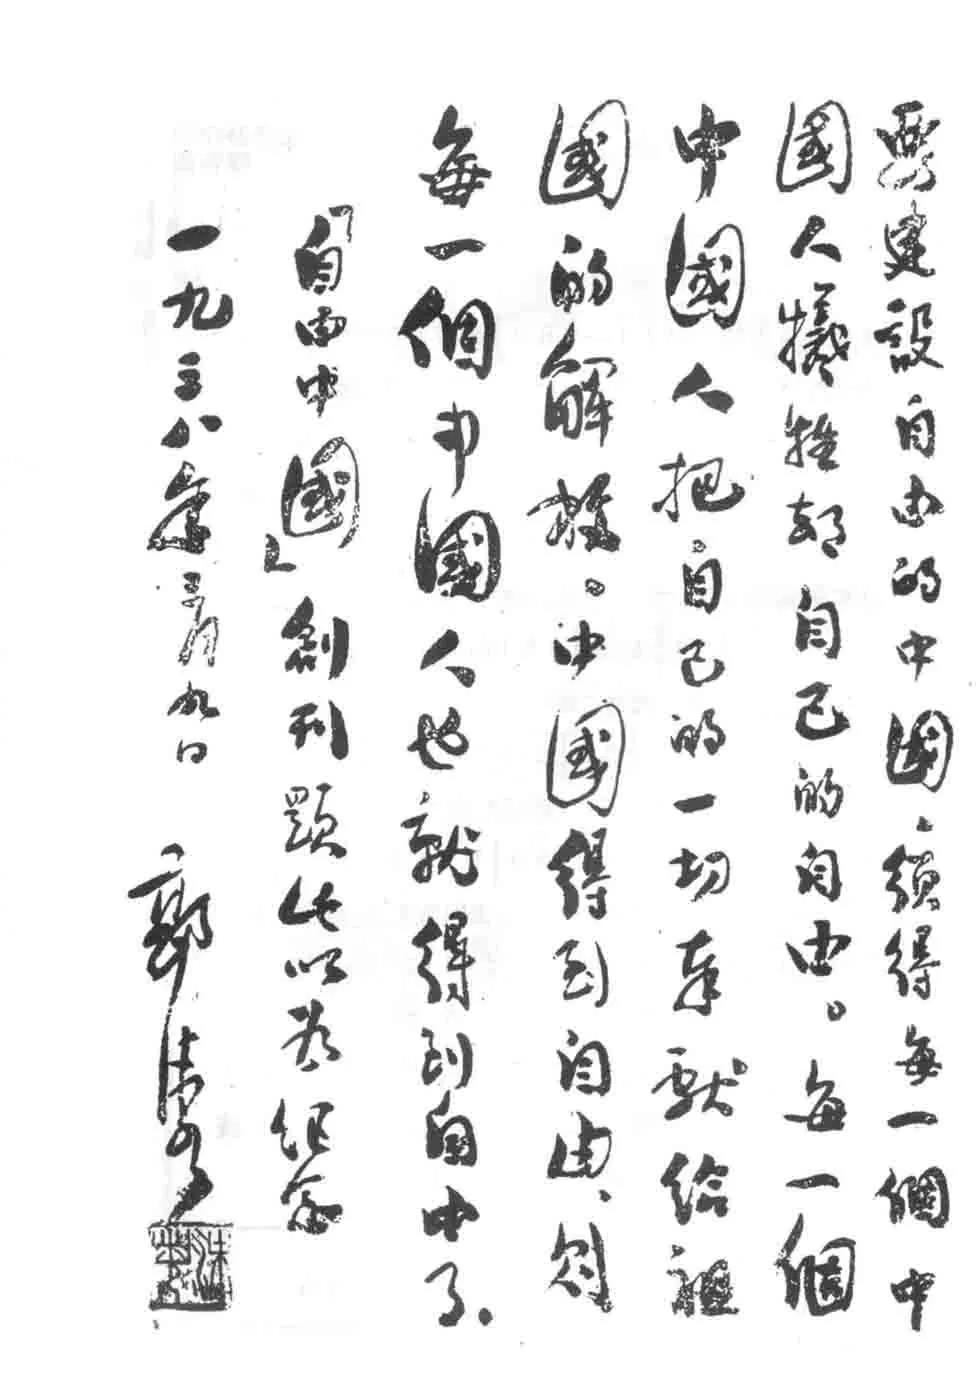 要建設自由的中國，須得每一個中
國人犧牲却自己的自由。每一個
中國人把自己的一切奉獻給祖
國的解放。中國得到自由、則
每一個中國人也就得到自由了.
「自由中國」創刊題此以為紀念
一九三八年三月九日 郭沫若
沫若